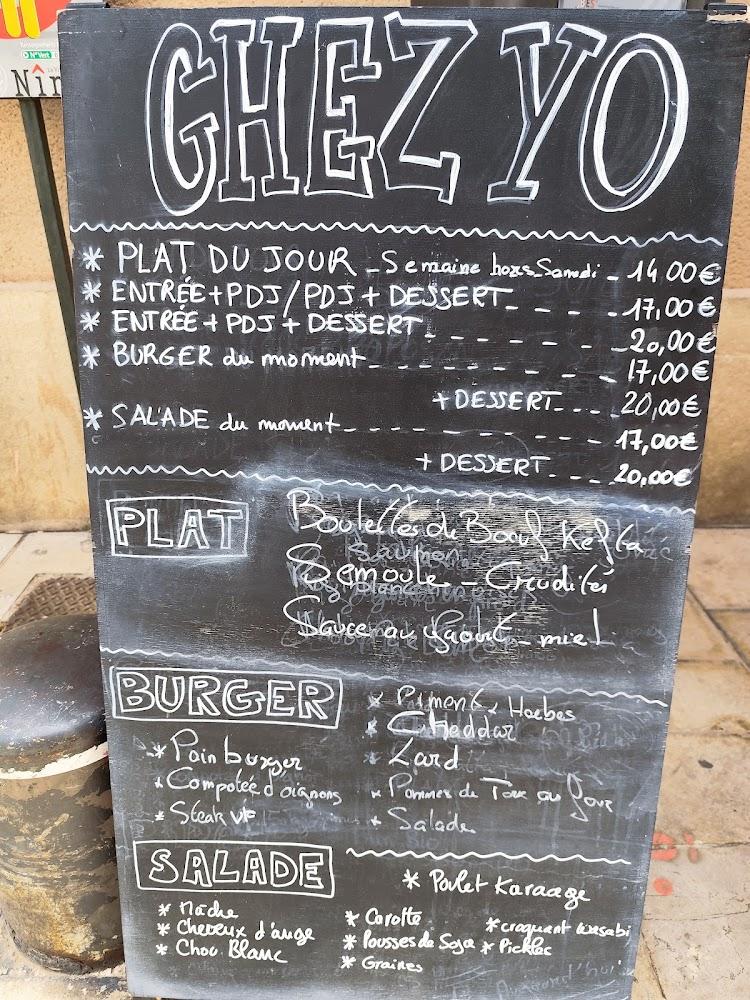 Nîm
CHEZ YO
* PLAT DU JOUR - Semaine hors Samedi - 14,00€
* ENTRÉE+PDJ/PDJ + DESSERT - - - - 17,00€
* ENTRÉE + PDJ + DESSERT - - - - - - 20,00€
* BURGER du moment - - - - - - - - 17,00€
+ DESSERT - - - 20,00€
* SALADE du moment - - - - - - - - 17,00€
+ DESSERT - - - 20,00€
PLAT
Boulettes de Boeuf Kefta
Semoule - Crudités
Sauce au Yaourt - miel
BURGER
* Pain burger
* Compotée d'oignons
* Steak
* Piment, Herbes
* Cheddar
* Lard
* Pommes de Terre au Four
* Salade
SALADE
* Poulet Karaage
* Mâche
* Cheveux d'ange
* Chou Blanc
* Carotte
* Pousses de Soja
* Graines
* craquant wasabi
* Pickles